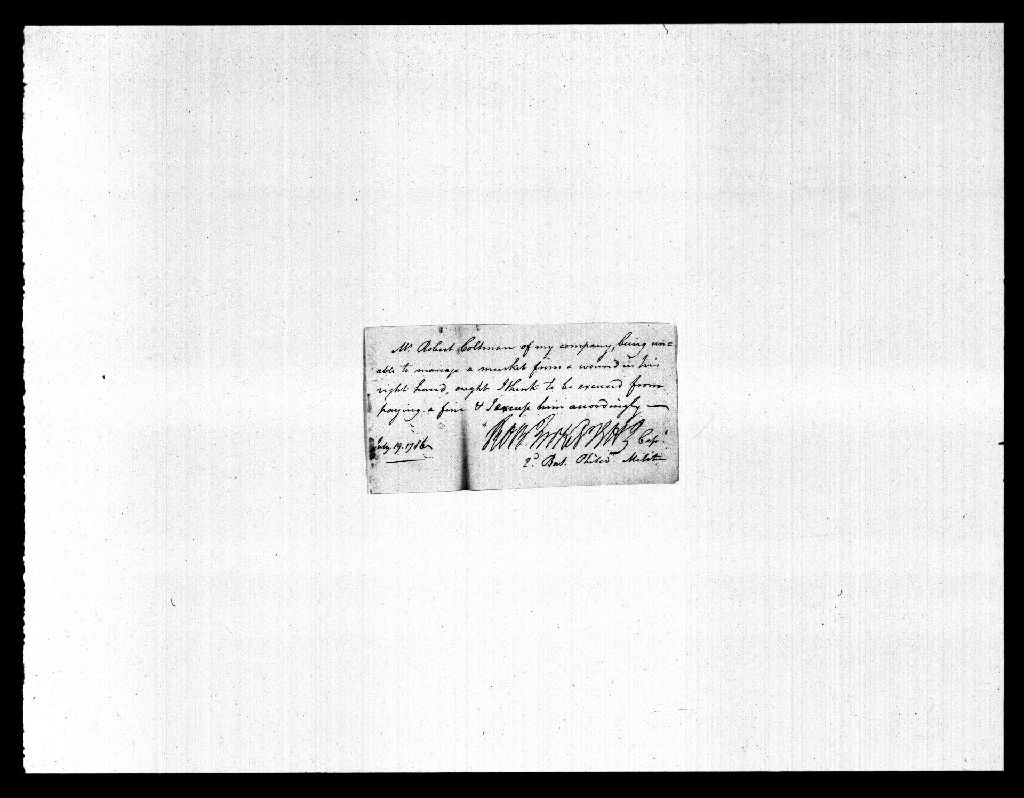 Mr. Robert Coltman of my company, being un=
able to manage a musket from a wound in his
right hand, ought I think to be excused from
paying a fine & I excuse him accordingly
July 19. 1786
Capt.
2d. Bat. Philad Milit.